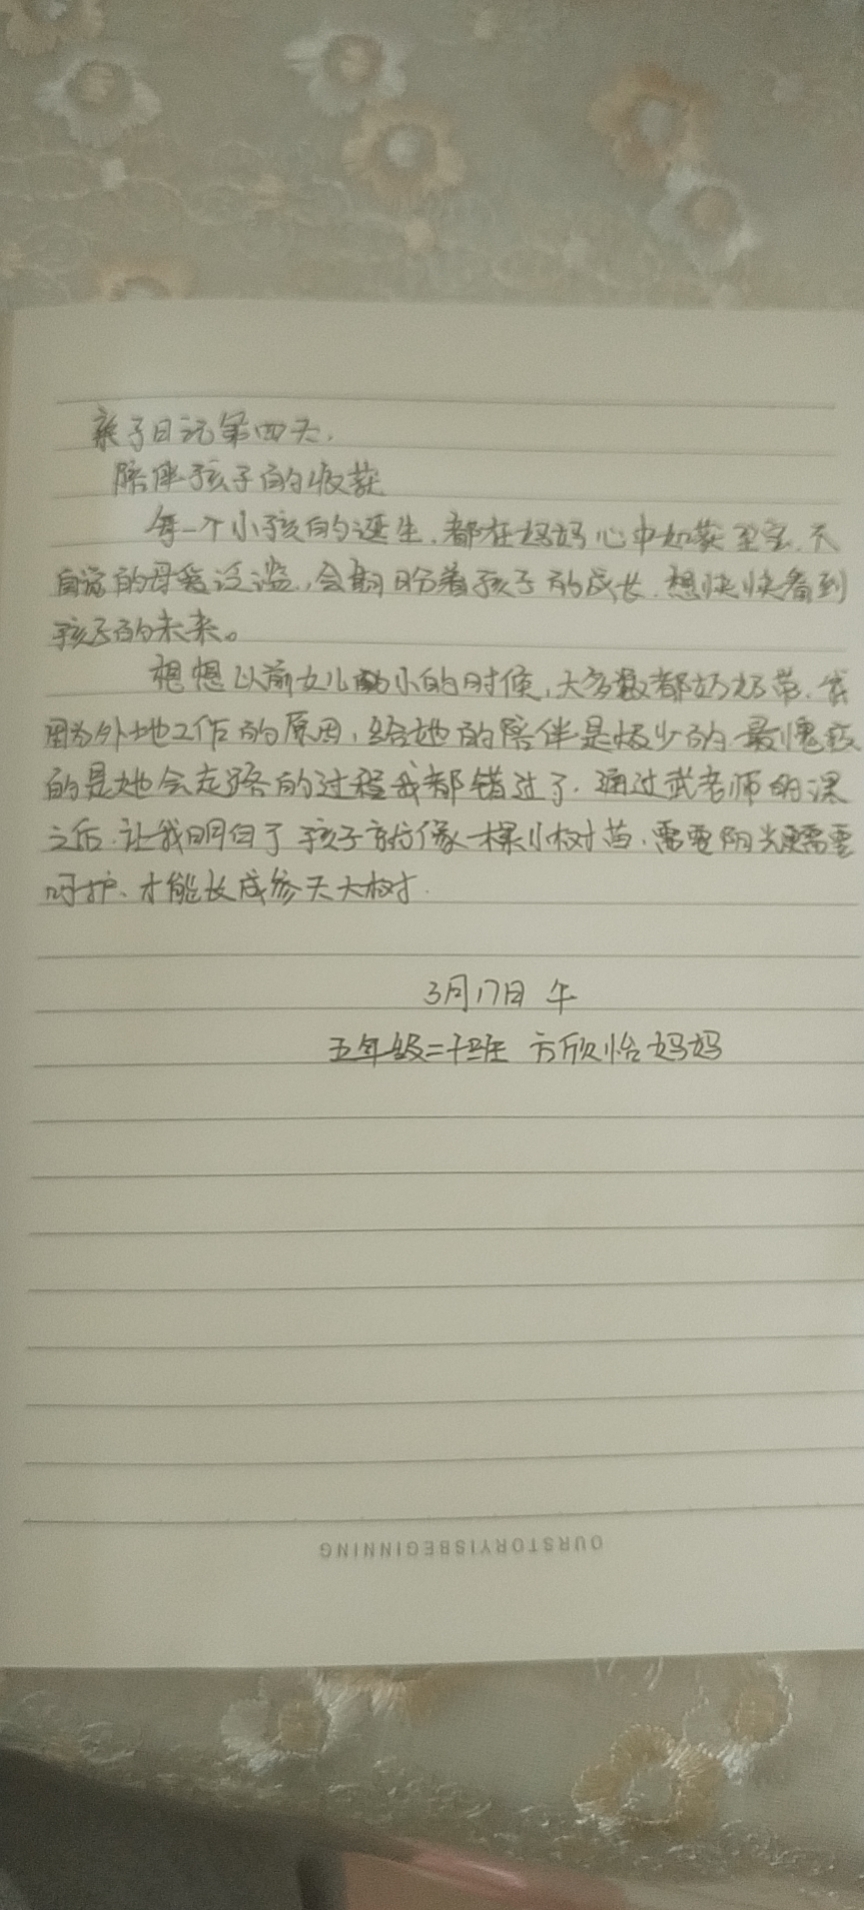 亲子日记第四天,
陪伴孩子的收获
每一个小孩的诞生,都在妈妈心中如获至宝,不
自觉的母爱泛滥,会期盼着孩子的成长,想快快看到
孩子的未来。
想想以前女儿小的时候,大多数都奶奶带,我
因为外地工作的原因,给她的陪伴是极少的,最愧疚
的是她会走路的过程我都错过了.通过武老师的课
之后,让我明白了孩子就像一棵小树苗,需要阳光更需要
呵护、才能长成参天大树.
3月17日 午
五年级二十班 方欣怡妈妈
OURSTORYISBEGINNING